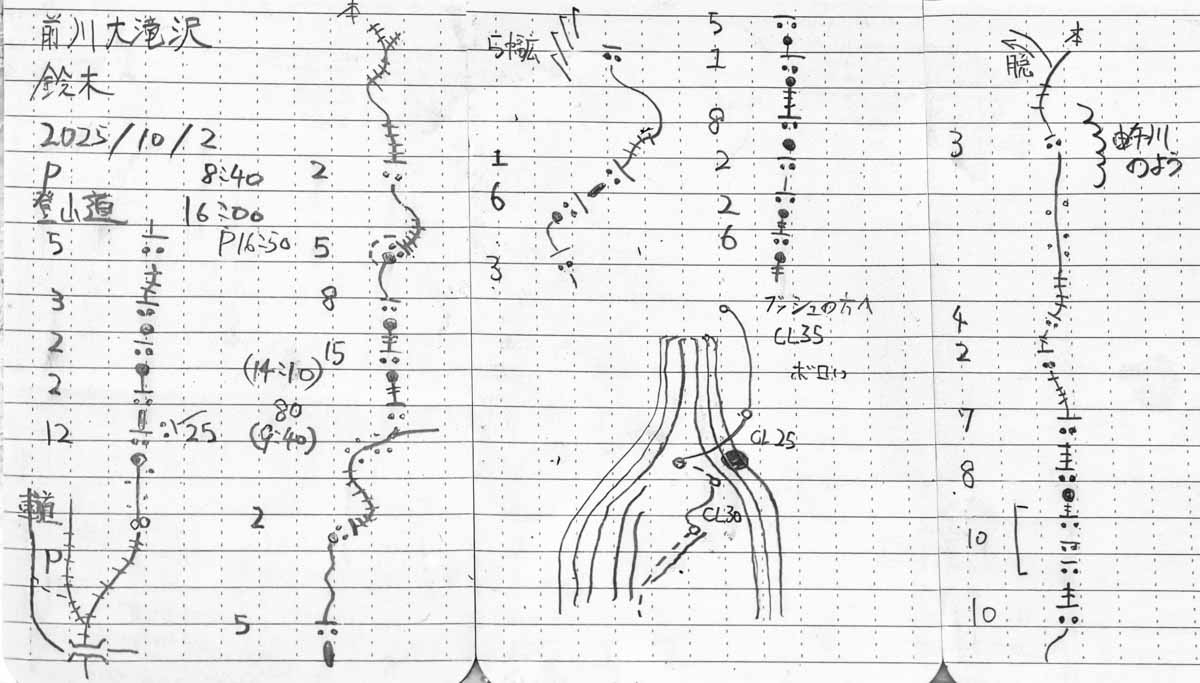 前川大滝沢
鈴木
2025/10/2
P 8:40
登山道 16:00
P16:50
5
3
2
2
12
25
車道
P
本
2
5
8
15
(14:10)
80
(9:40)
2
5
5幅広
1
6
3
5
1
8
2
2
6
ブッシュの方へ
CL35
ボロい
CL25
CL30
脱
本
3
のよう
4
2
7
8
10
10